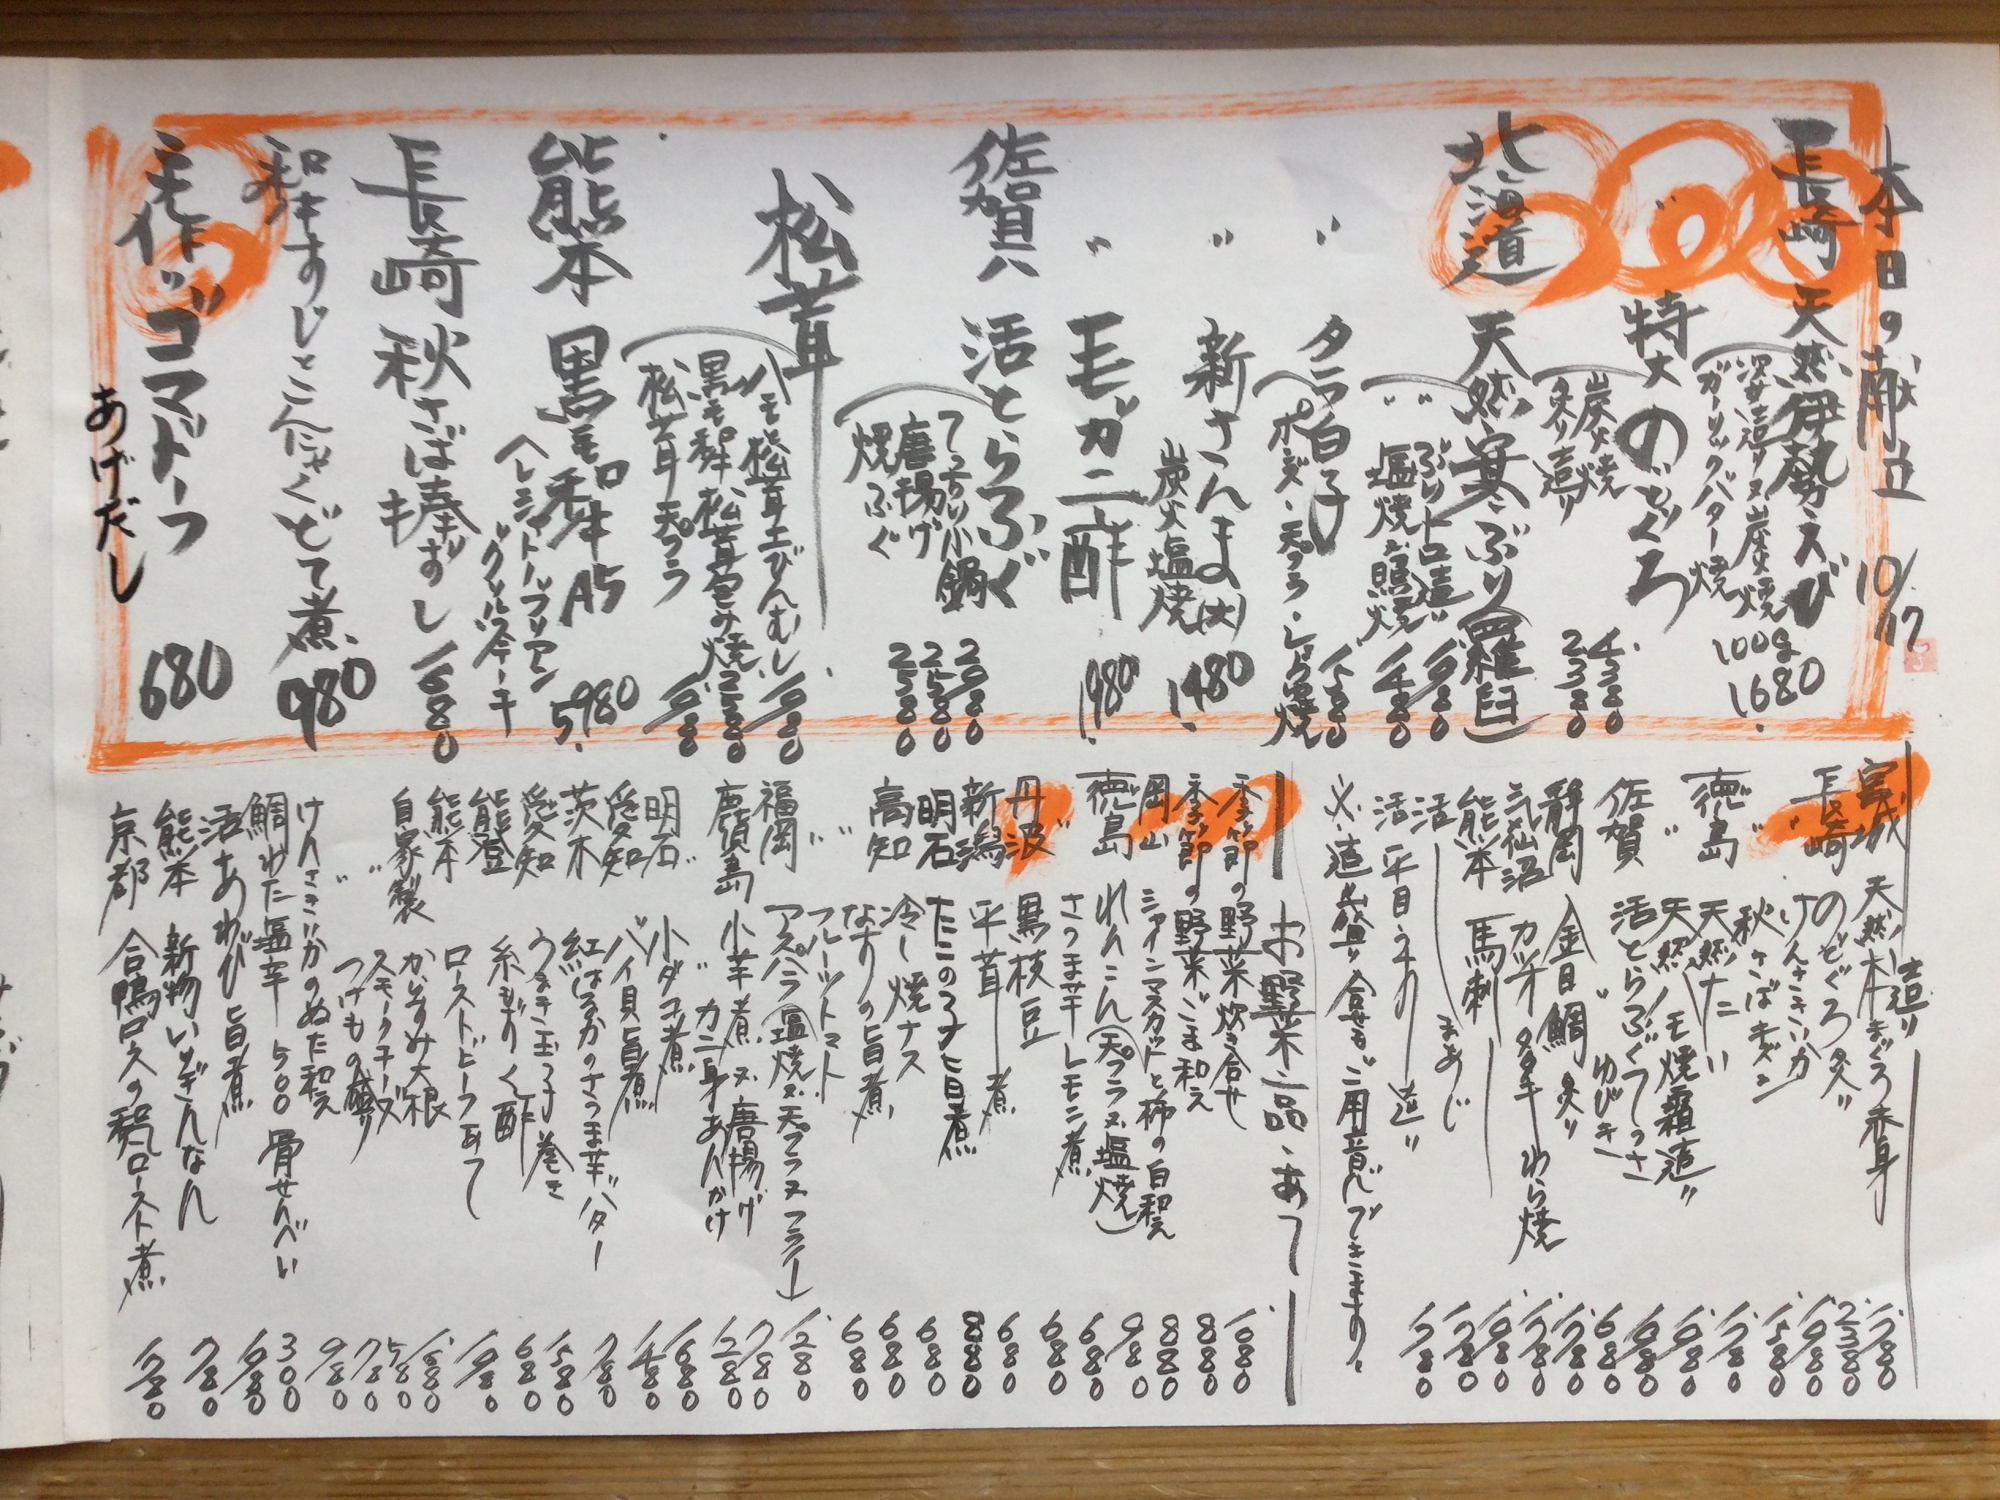 本日の献立 10/17
長崎 天然伊勢えび 100g 1680.
炭火焼
ガーリックバター焼
〃 特大 のどぐろ
炭火焼 4380
炙り造り 2380
北海道 天然寒ぶり(羅臼)
ぶりトロ造り 1980
〃 塩焼 照焼 1480
〃 タラ白子
ポン酢・天プラ・しょう油焼 1580
〃 新さんま(大)
炭火塩焼 1480
〃 毛ガニ酢 1980
佐賀 活とらふぐ
てっちり小鍋 2980
唐揚げ 2580
焼ふぐ 2580
松茸
ハモ松茸土びんむし 1980
黒毛和牛松茸包み焼 2580
松茸 天プラ 1980
熊本 黒毛和牛A5 5,980
シャトーブリアン
グリルステーキ
長崎 秋さば棒ずし 1680
和牛すじとこんにゃくどて煮 980
ゴマドーフ 680
あげだし
造り
宮城 天然本まぐろ赤身 1780
長崎 のどぐろ炙り 2380
〃 けんさきいか 1980
〃 秋さばキズシ 1580
徳島 天然たい 1780
〃 天然ハモ焼霜造り 1980
佐賀 活とらふぐてっさ 1980
〃 ゆびき 680
静岡 金目鯛炙り 1780
気仙沼 カツオタタキ わら焼 1780
熊本 馬刺 1980
活 まあじ 1280
活 平目うすり造り 1780
少々造り盛り合せもご用意できます。
お野菜・一品・あて
季節の野菜炊き合せ 1080
季節の野菜ごま和え 880
岡山 シャインマスカットと柿の白和え 880
徳島 れんこん(天プラ又塩焼) 980
〃 さつま芋レモン煮 680
丹波 黒枝豆 680
新潟 平茸煮 680
明石 たこの子旨煮 880
高知 冷し焼ナス 680
〃 なすの旨煮 680
〃 フルーツトマト 680
福岡 アスパラ(塩焼又天プラ又フライ) 1280
鹿児島 小芋煮又唐揚げ 780
〃 カニ身あんかけ 1280
明石 小ダコ煮 1680
愛知 バイ貝旨煮 1480
茨木 紅はるかのさつま芋バター 780
愛知 うまき玉子巻き 1580
能登 糸もずく酢 680
熊本 ローストビーフあて 1980
自家製 からすみ大根 1680
〃 スモークチーズ 580
〃 つけもの盛り 780
けんさきいかのぬた和え 980
鯛わた塩辛 500 骨せんべい 300
活あわび旨煮 1980
熊本 新物いぎんなん 780
京都 合鴨ロースの和風ロースト煮 1780